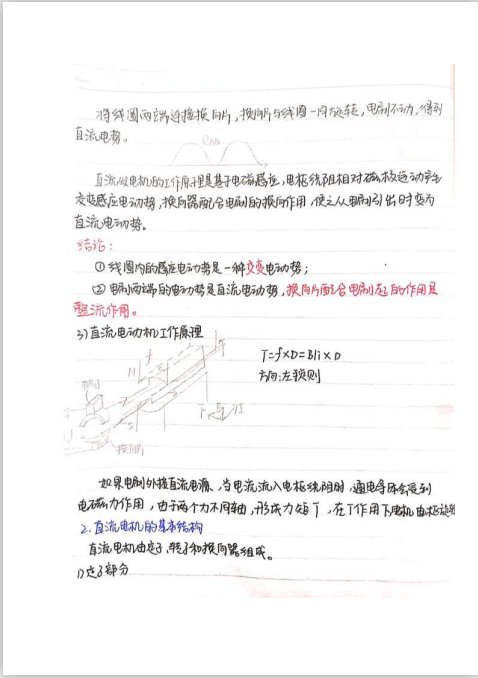 将线圈两端连接换向片，换向片与线圈一同旋转，电刷不动，得到
直流电势。
直流发电机的工作原理是基于电磁感应，电枢绕阻相对磁极运动产生
交变感应电动势，换向器配合电刷的换向作用，使之从电刷引出时变为
直流电动势。
结论：
①线圈内的感应电动势是一种交变电动势；
②电刷两端的电动势是直流电动势，换向片配合电刷起的作用是
整流作用。
3)直流电动机工作原理
N
f
T=f×D=Bli×D
方向:左手则
电刷
U
S
换向片
如果电刷外接直流电源、当电流流入电枢绕阻时，通电导体会受到
电磁力作用，由于两个力不同轴，形成力矩T，在T作用下电机电枢旋转
2.直流电机的基本结构
直流电机由定子、转子和换向器组成。
1)定子部分